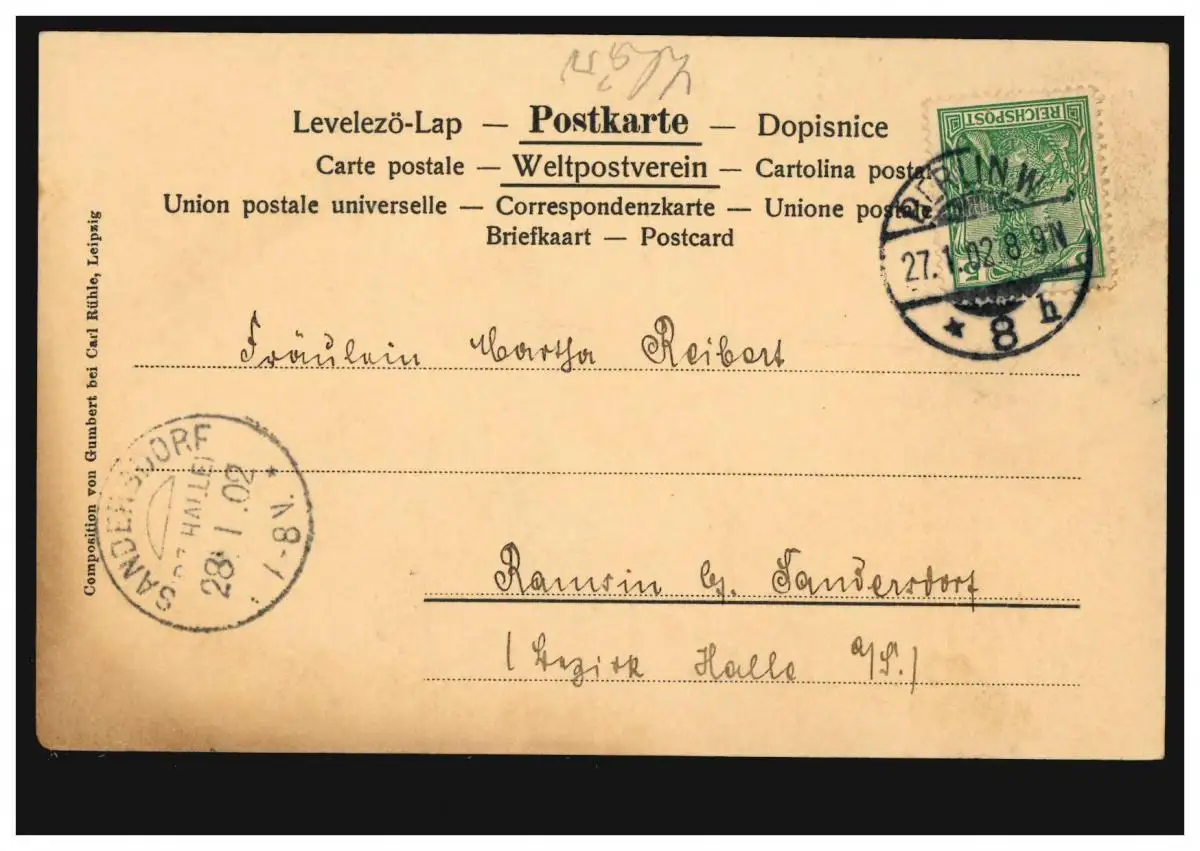 Levelezö-Lap — Postkarte — Dopisnice
Carte postale — Weltpostverein — Cartolina postale
Union postale universelle — Correspondenzkarte — Unione postale
Briefkaart — Postcard
REICHSPOST
BERLIN W.
27.1.02.8 9N
* 8 h
Composition von Gumbert bei Carl Rühle, Leipzig
Fräulein Martha Reibert
SANDERSDORF
HALLE
28. 1 .02
* N 8-1
Ramsin b/. Sandersdorf
(Bezirk Halle a/S.)